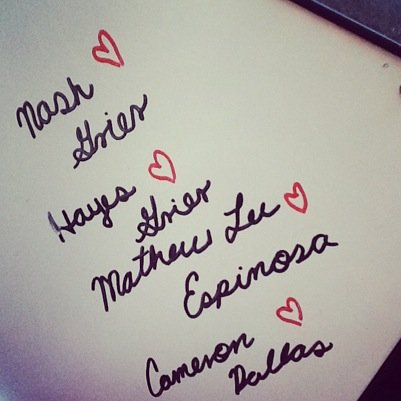 Nash
Grier
Hayes
Grier
Mathew Lee
Espinosa
Cameron
Dallas